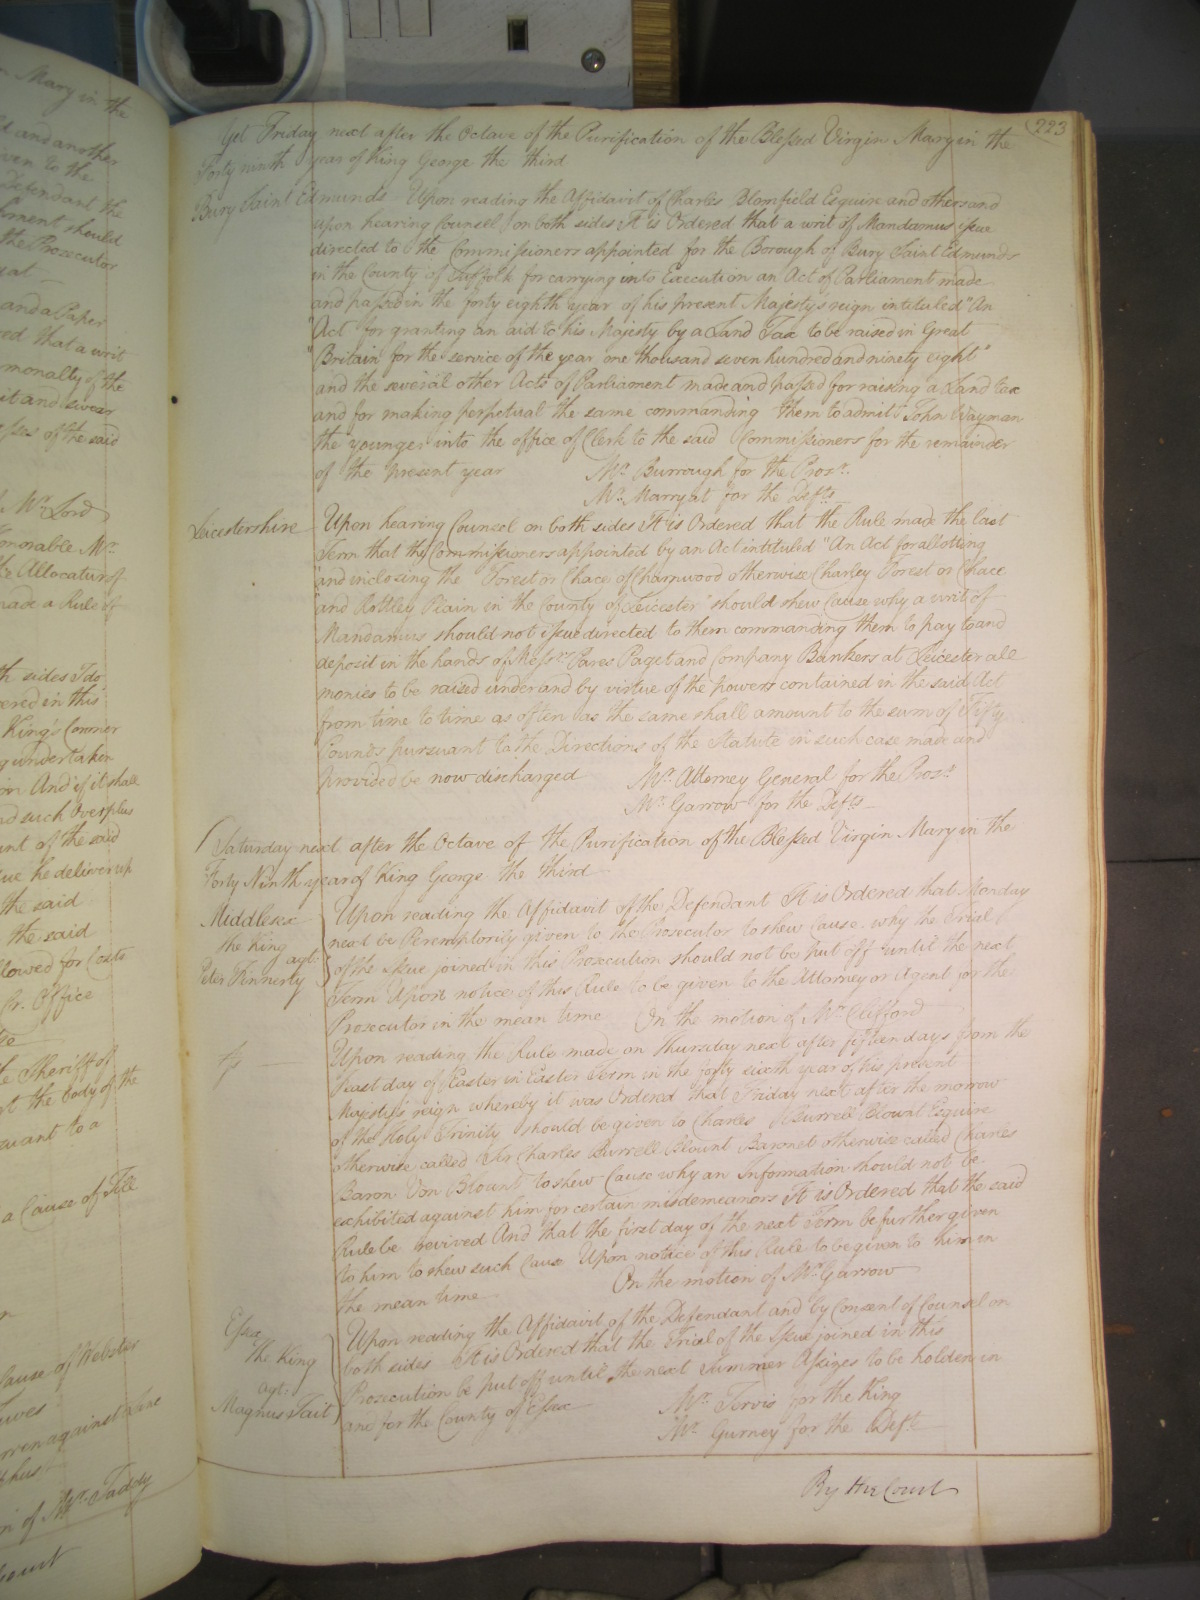 223
Yet Friday next after the Octave of the Purification of the Blessed Virgin Mary in the
Forty ninth year of King George the third
Bury Saint Edmunds Upon reading the Affidavit of Charles Blomfield Esquire and others and
upon hearing Counsel on both sides It is Ordered that a writ of Mandamus issue
directed to the Commissioners appointed for the Borough of Bury Saint Edmunds
in the County of Suffolk for carrying into Execution an Act of Parliament made
and passed in the forty eighth year of his present Majestys reign intituled "An
"Act for granting an aid to his Majesty by a Land Tax to be raised in Great
"Britain for the service of the year one thousand seven hundred and ninety eight"
and the several other Acts of Parliament made and passed for raising a Land tax
and for making perpetual the same commanding them to admit John Wayman
the younger into the office of Clerk to the said Commissioners for the remainder
of the present year Mr. Burrough for the Prosr.
Mr. Marryat for the Defts.
Leicestershire Upon hearing Counsel on both sides It is Ordered that the Rule made the last
Term that the Commissioners appointed by an Act intituled "An Act for allotting
"and inclosing the Forest or Chace of Charnwood otherwise Charley Forest or Chace
"and Rothley Plain in the County of Leicester" should shew Cause why a writ of
Mandamus should not issue directed to them commanding them to pay to and
deposit in the hands of Messrs. Pares Paget and Company Bankers at Leicester all
monies to be raised under and by virtue of the powers contained in the said Act
from time to time as often as the same shall amount to the sum of Fifty
Pounds pursuant to the Directions of the Statute in such case made and
provided be now discharged Mr. Attorney General for the Prosr.
Mr. Garrow for the Defts.
Saturday next after the Octave of the Purification of the Blessed Virgin Mary in the
Forty Ninth year of King George the third
Middlesex
the King
agt.
Peter Finnerty
Upon reading the Affidavit of the Defendant It is Ordered that Monday
next be Peremptorily given to the Prosecutor to shew Cause why the Trial
of the Issue joined in this Prosecution should not be put off until the next
Term Upon notice of this Rule to be given to the Attorney or Agent for the
Prosecutor in the mean time On the motion of Mr. Clifford
Upon reading the Rule made on Thursday next after fifteen days from the
Feast day of Easter in Easter Term in the forty sixth year of his present
Majesty's reign whereby it was Ordered that Friday next after the morrow
of the Holy Trinity should be given to Charles Burrell Blount Esquire
otherwise called Sir Charles Burrell Blount Baronet otherwise called Charles
Baron Von Blount to shew Cause why an Information should not be
exhibited against him for certain misdemeanors It is Ordered that the said
Rule be revived And that the first day of the next Term be further given
to him to shew such Cause Upon notice of this Rule to be given to him in
the mean time On the motion of Mr. Garrow
Essex
The King
agt.
Magnus Tait
Upon reading the Affidavit of the Defendant and by Consent of Counsel on
both sides It is Ordered that the Trial of the Issue joined in this
Prosecution be put off until the next Summer Assizes to be holden in
and for the County of Essex Mr. Jervis for the King
Mr. Gurney for the Deft.
By the Court